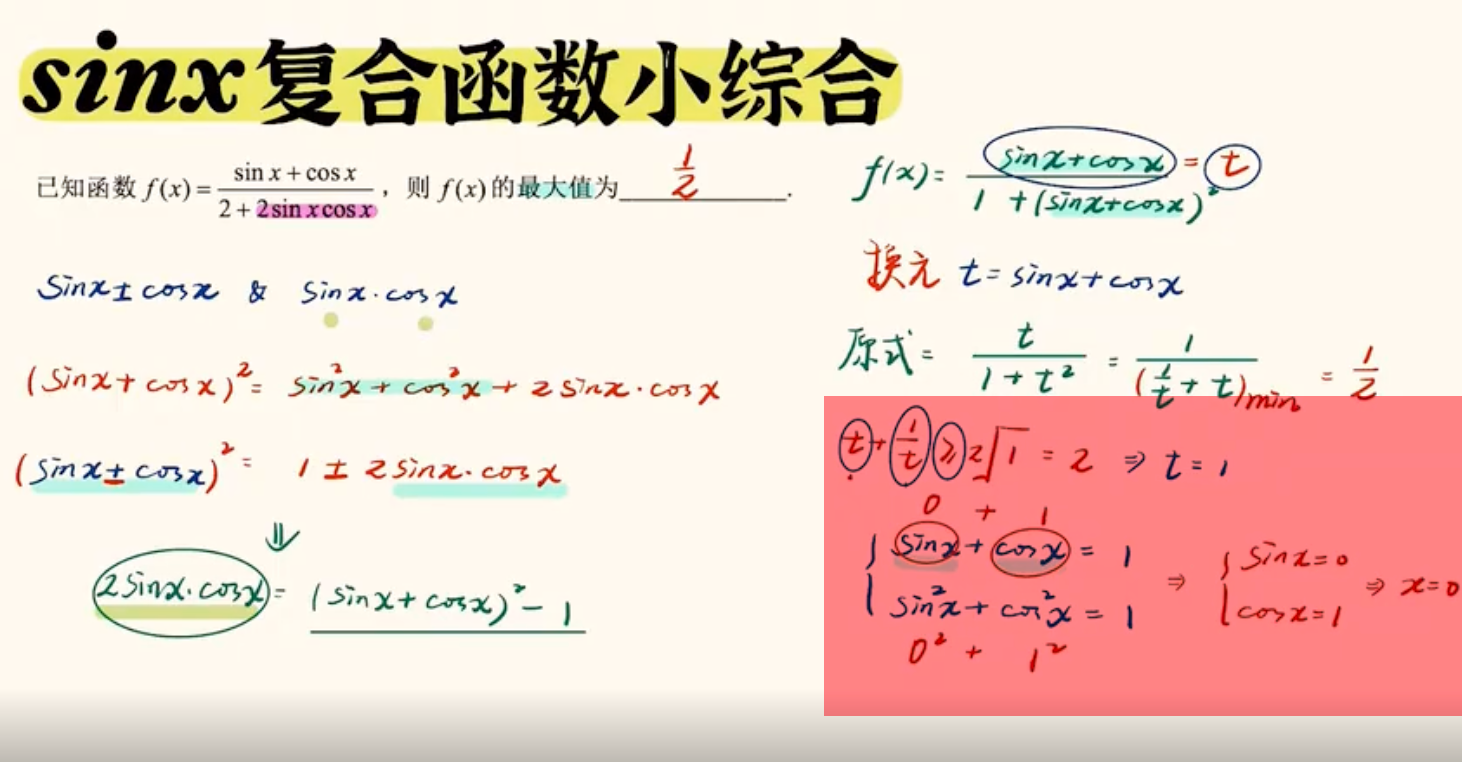 sinx复合函数小综合
已知函数 f(x) = (sin x + cos x)/(2 + 2sin x cos x)，则 f(x) 的最大值为 1/2 .
sinx ± cosx & sinx·cosx
(sinx + cosx)² = sin²x + cos²x + 2sinx·cosx
(sinx ± cosx)² = 1 ± 2sinx·cosx
⇓
2sinx·cosx = (sinx + cosx)² - 1
f(x) = (sinx + cosx)/(1 + (sinx + cosx)²) = t
换元 t = sinx + cosx
原式 = t/(1 + t²) = 1/(1/t + t)min = 1/2
t + 1/t ≥ 2√1 = 2 ⇒ t = 1
0 + 1
{ sinx + cosx = 1
{ sin²x + cos²x = 1 ⇒ { sinx = 0 { cosx = 1 ⇒ x = 0
0² + 1²